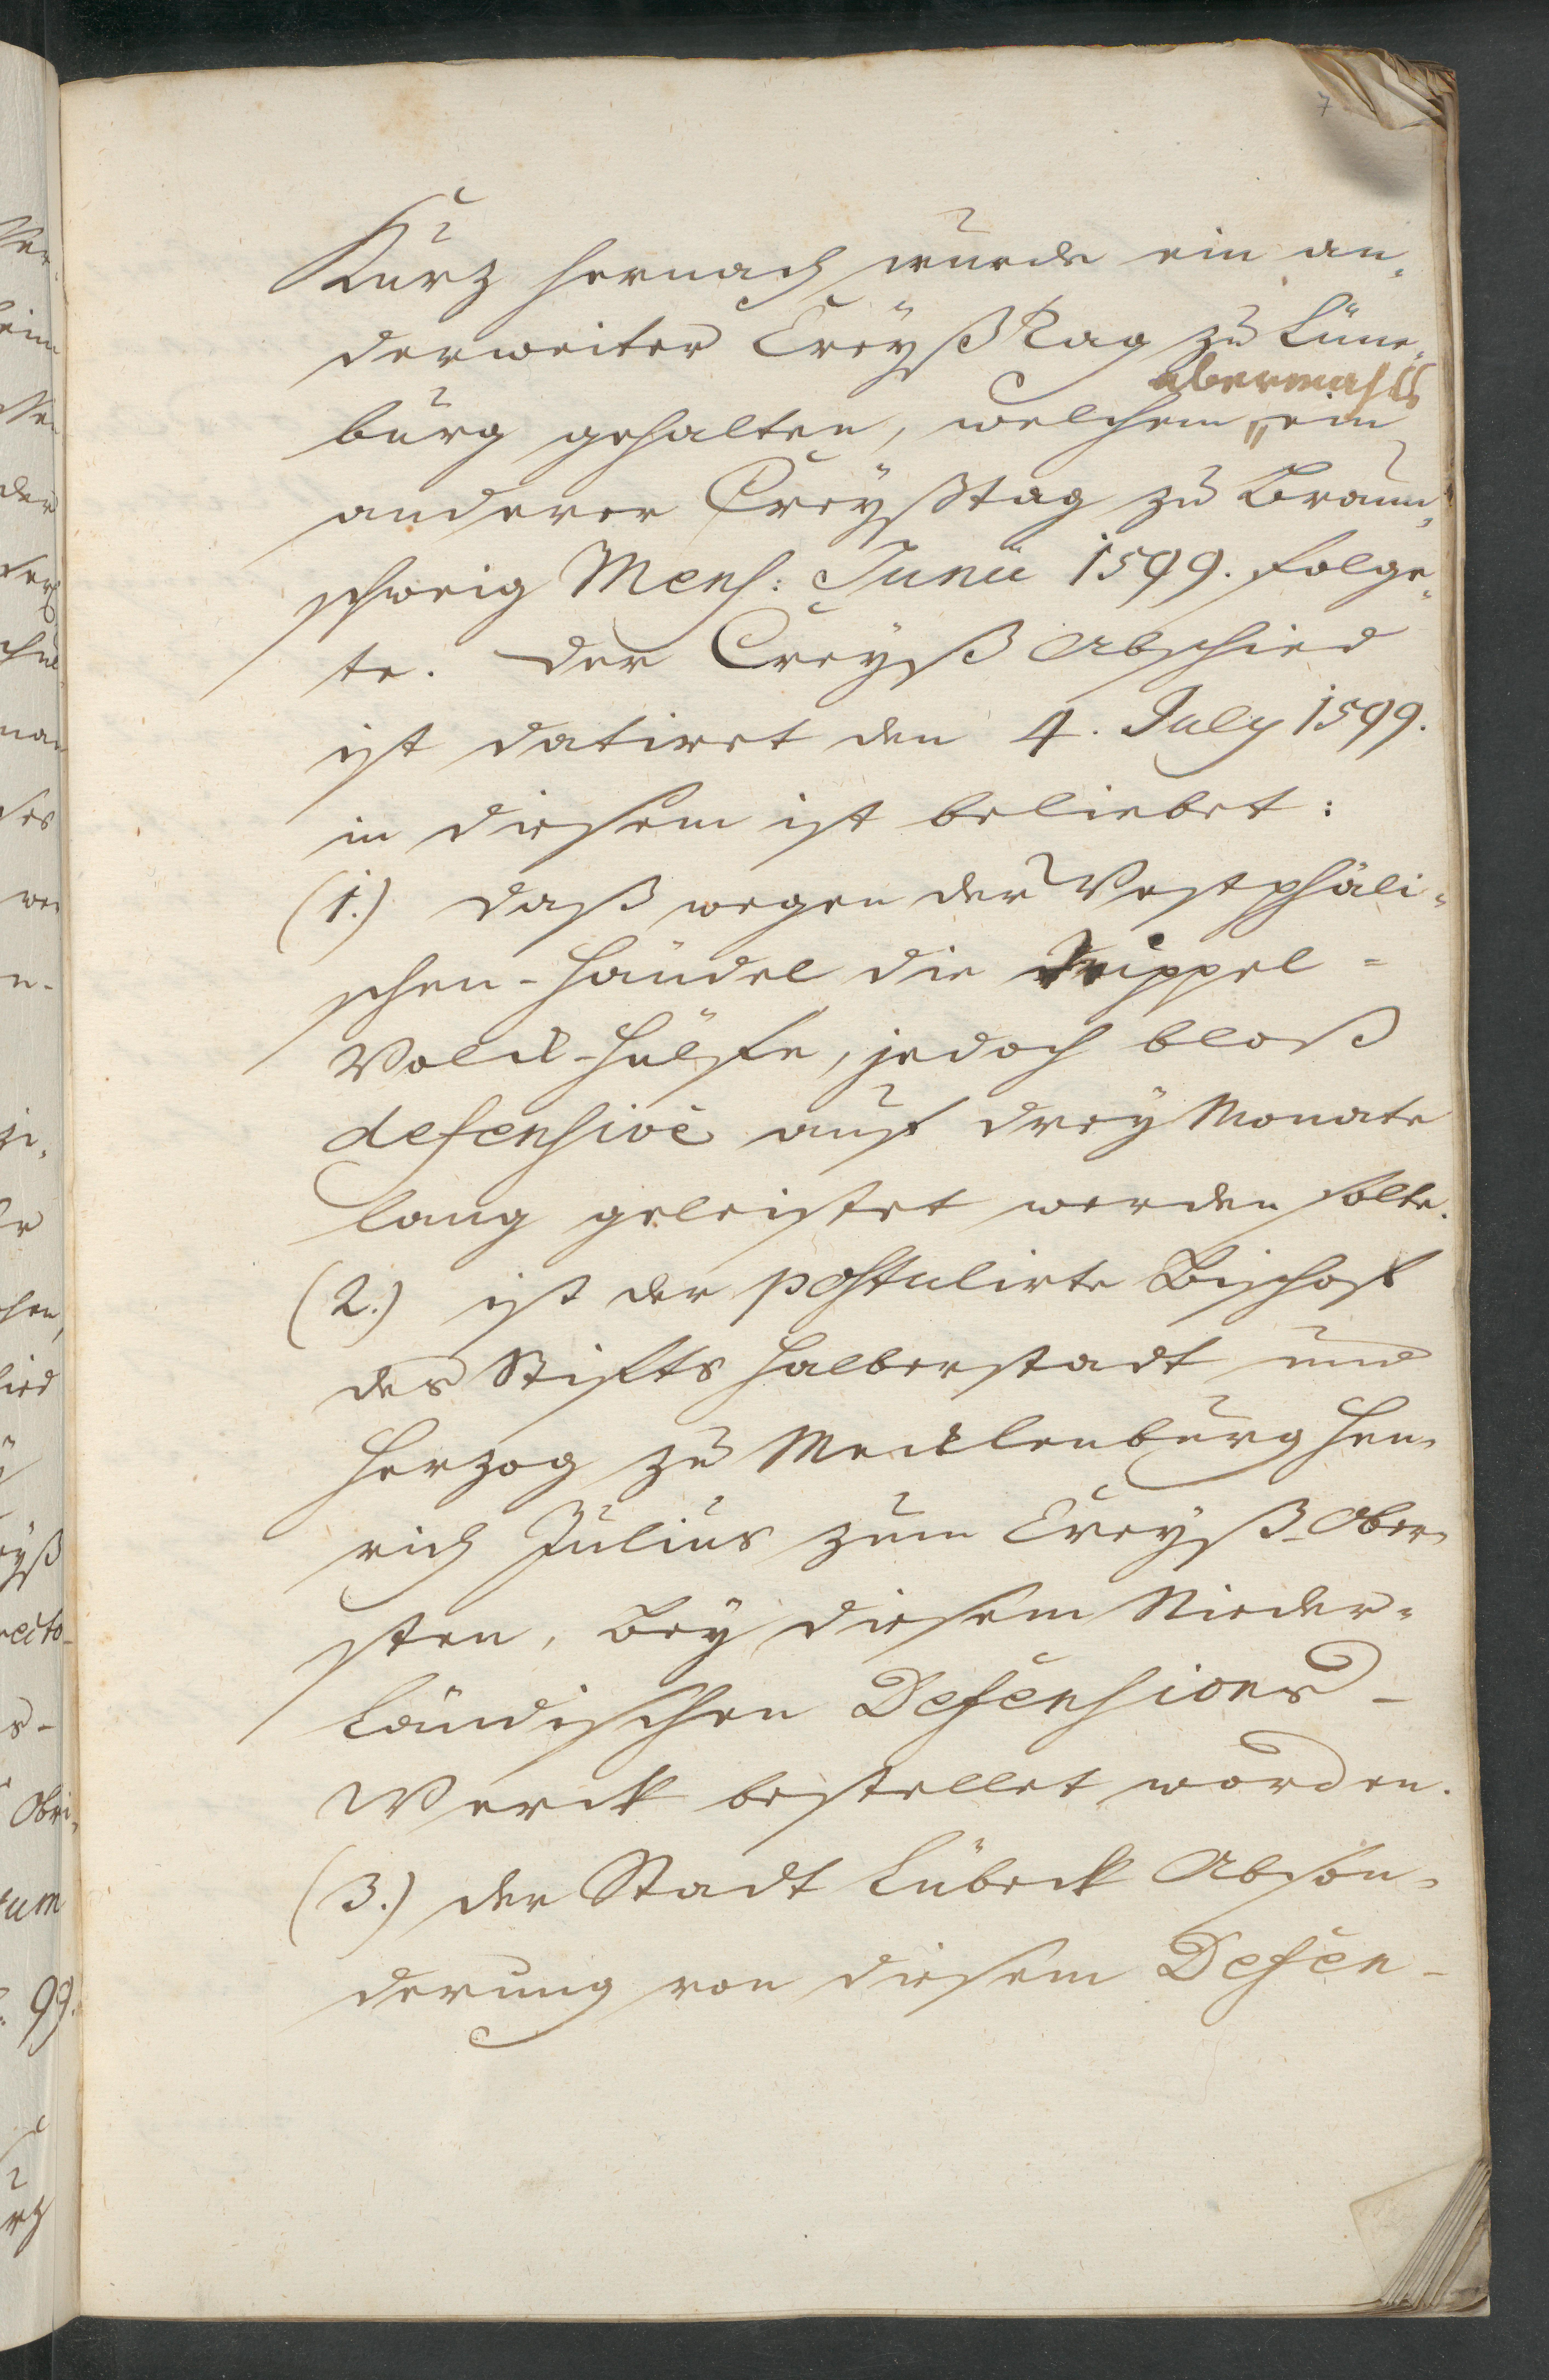 7
Kurz hernach wurde ein an„
derweiter CreyßTag zu Lüne„
abermahls
burg gehalten, welchem „ ein
anderer Creyßtag zu Braun„
schweig Mens: Junii 1599. folge„
te. Der Creyß Abschied
ist datiret den 4. July 1599.
in diesem ist beliebet:
(1.) daß wegen der Westphäli„
schen-Händel die Trippel-
Volck-Hülffe, jedoch bloß
defensivè auf drey Monate
lang geleistet werden solte.
(2.) ist der postulirte Bischoff
des Stiffts Halberstadt und
Herzog zu Mecklenburg Hen„
rich Julius zum Creyß-Ober„
sten, bey diesem Nieder-
ländischen Defensions-
Werck bestellet worden.
(3.) der Stadt Lübeck Abson„
derung von diesem Defen-